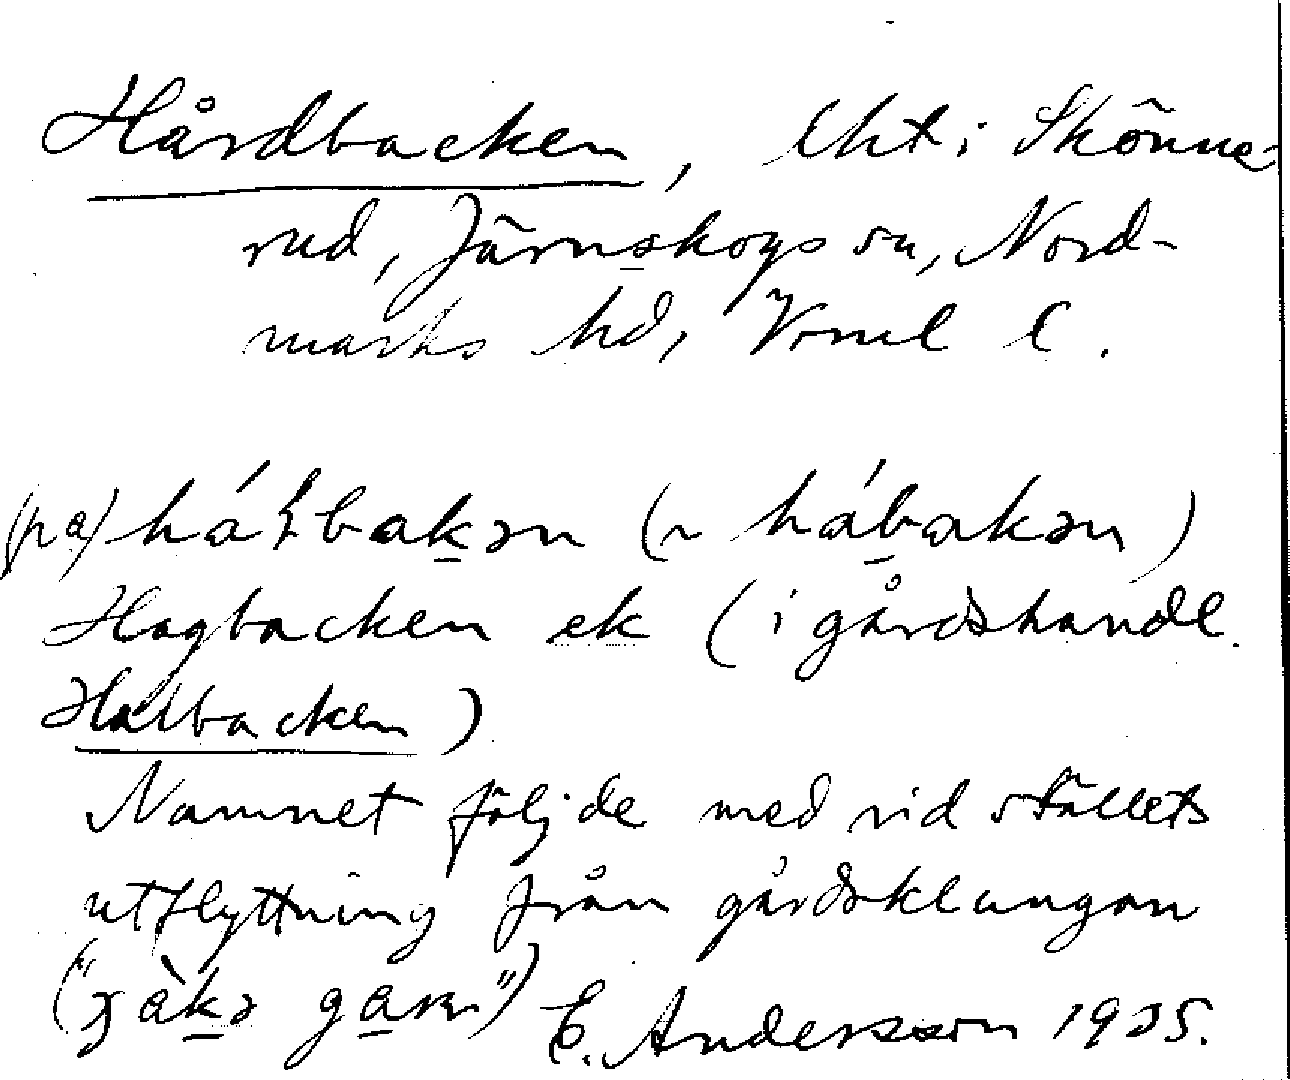 Hårdbacken, lht i Skönne-
rud, Järnskogs sn, Nord-
marks hd, Vrml l.
(pa) háɫbakən (~ hábakən)
Hagbacken ek (i gårdshandl.
Halbacken)
Namnet följde med vid ställets
utflyttning från gårdsklungan
gaɳ") E. Andersson 1935.